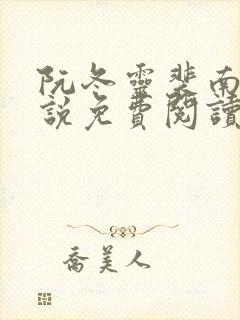 阮冬靈裴南
說免費閱讀
喬美人